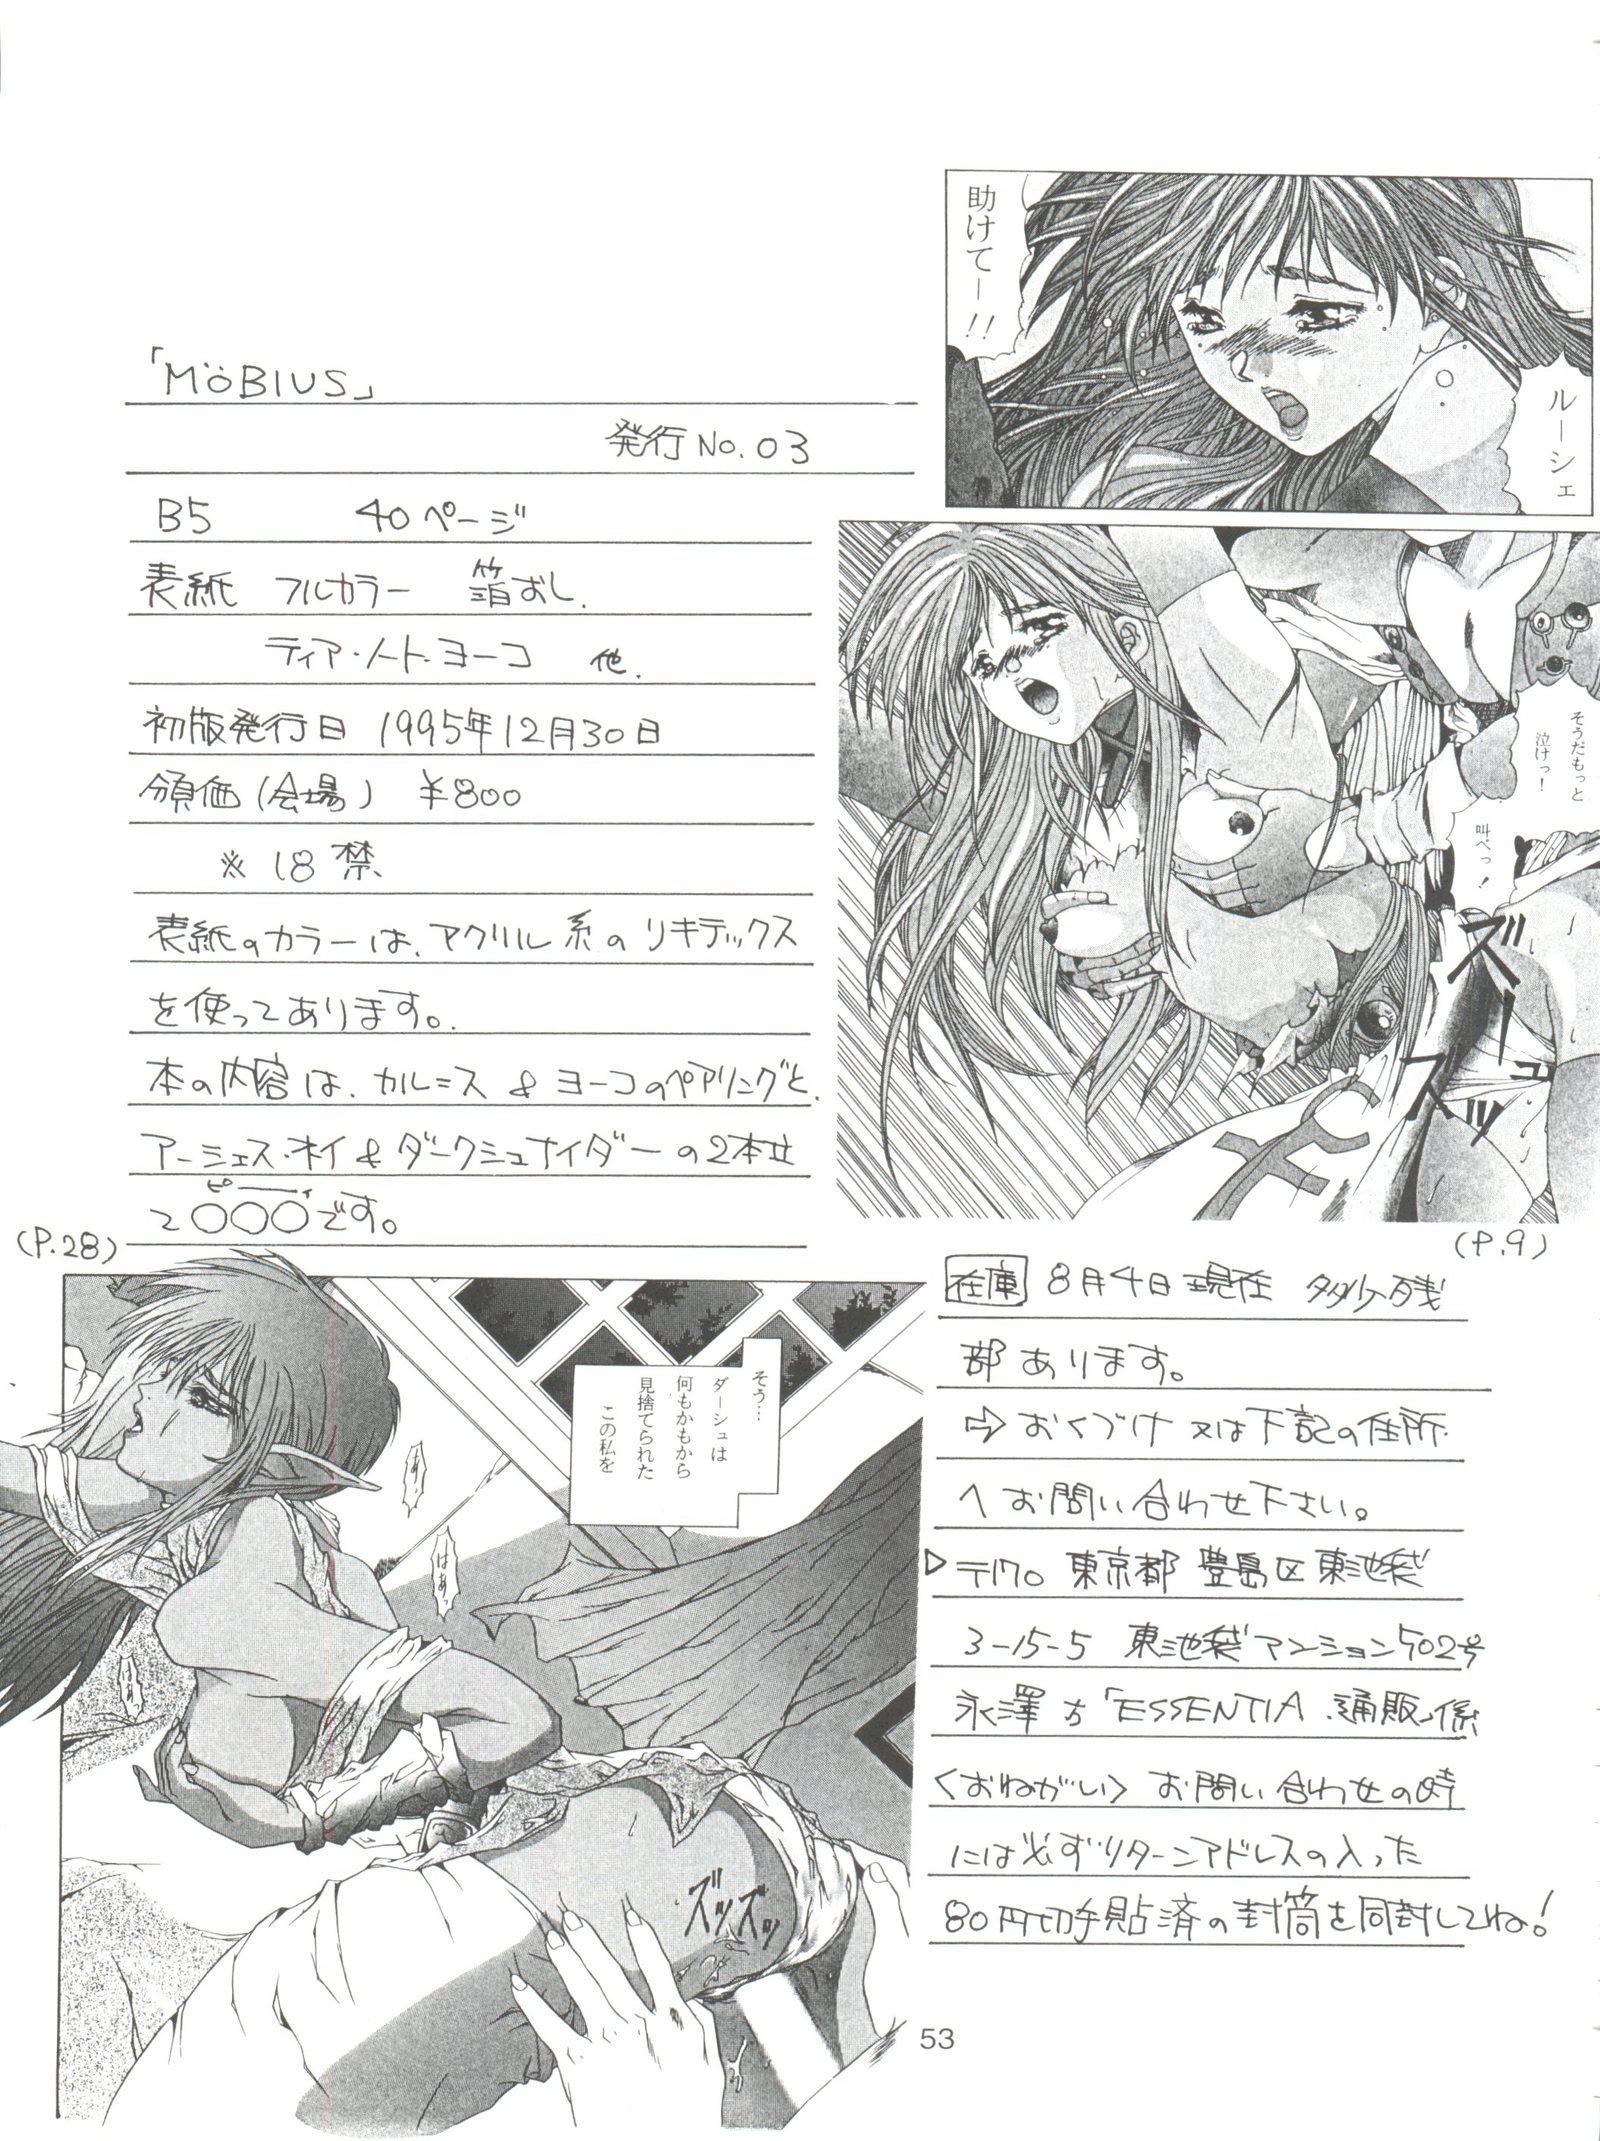 「MÖBIUS」
発行No.03
B5 40ページ
表紙 フルカラー 箔おし.
ティア・ノート・ヨーコ 他.
初版発行日 1995年12月30日
頒価(会場) ¥800
※18禁
表紙のカラーは、アクリル系のリキテックス
を使ってあります。
本の内容は、カル=ス & ヨーコのペアリングと、
アーシェス・ネイ & ダークシュナイダーの2本立
ピー
て〇〇〇です。
(P.28)
助けてー!!
ルーシェ
そうだもっと
泣けっ!
叫べっ!
ズ
ズッ
(P.9)
そう…
ダーシュは
何もかもから
見捨てられた
この私を
あ…!
はぁっ
はぁ
ズッズッ
在庫 8月4日現在 多少残
部あります。
⇨おくづけ又は下記の住所
へお問い合わせ下さい。
▷〒170 東京都豊島区東池袋
3-15-5 東池袋マンション502号
永澤方「ESSENTIA 通販」係
〈おねがい〉お問い合わせの時
には必ずリターンアドレスの入った
80円切手貼済の封筒を同封してね!
53